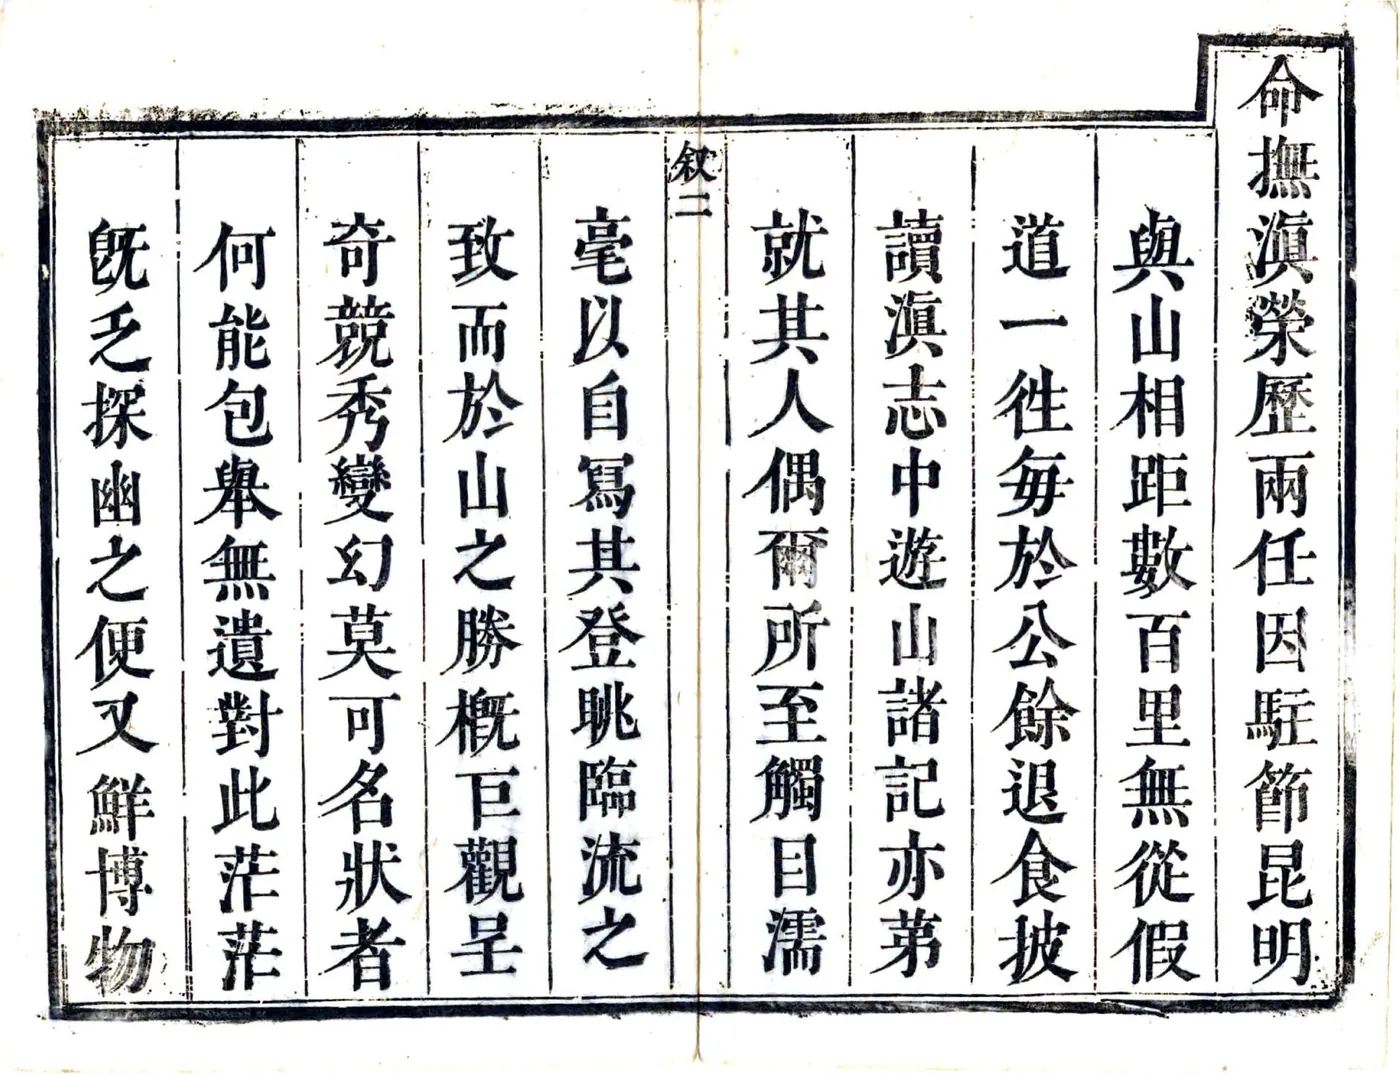 命撫滇榮歷兩任因駐節昆明
與山相距數百里無從假
道一徃每於公餘退食披
讀滇志中遊山諸記亦苐
就其人偶爾所至觸目濡
叙二
毫以自冩其登眺臨流之
致而於山之勝概巨觀呈
奇競秀變幻莫可名狀者
何能包舉無遺對此茫茫
旣乏探幽之便又鮮博物